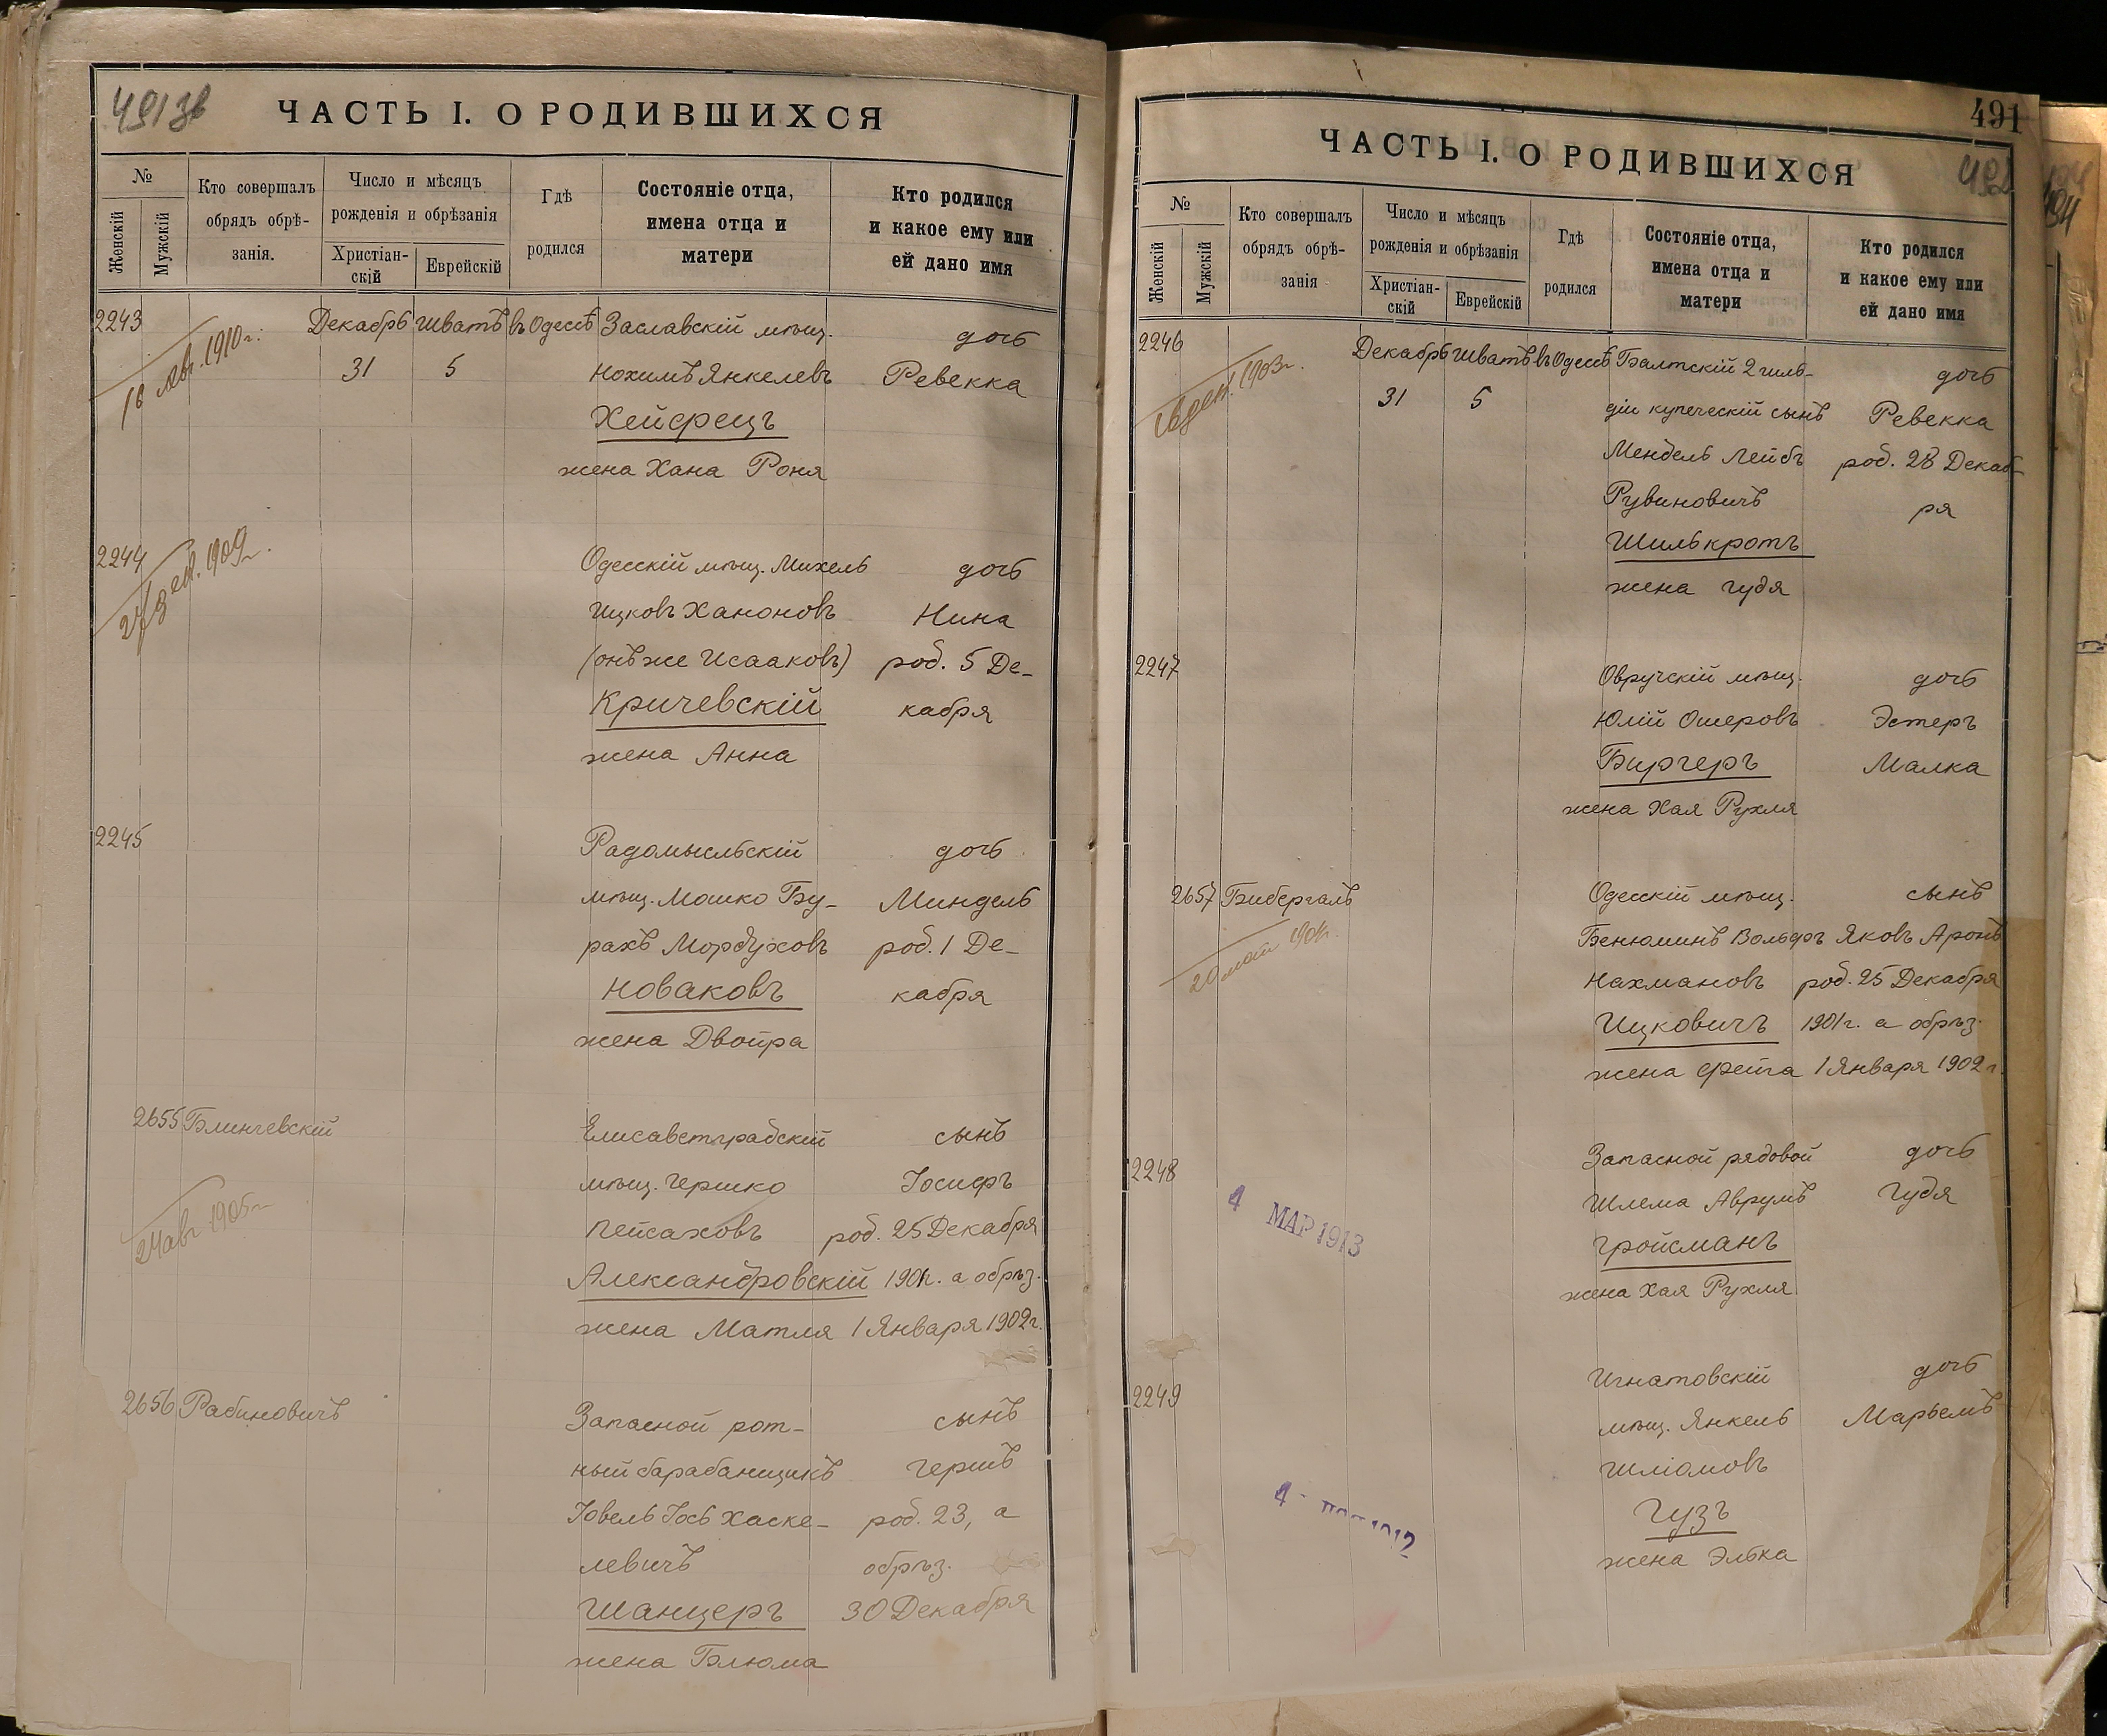 491 зв
ЧАСТЬ I. О РОДИВШИХСЯ
№
Женскій
Мужскій
Кто совершалъ
обрядъ обрѣ-
занія.
Число и мѣсяцъ
рожденія и обрѣзанія
Христіан-
скій
Еврейскій
Гдѣ
родился
Состояніе отца,
имена отца и
матери
Кто родился
и какое ему или
ей дано имя
2243 Декабрь Шватъ въ Одессѣ Заславскій мѣщ. дочь
31 5 Нохимъ Янкелевъ Ревекка
1910 г.
Хейфецъ
жена Хана Роня
2244 Одесскій мѣщ. Михель дочь
1909 г.
Ицковъ Ханоновъ Нина
(онъ же Исааковъ) род. 5 Де-
Кричевскій кабря
жена Анна
2245 Радомысльскій дочь
мѣщ. Мошко Бу- Миндель
рахъ Мордуховъ род. 1 Де-
Новаковъ кабря
жена Двойра
2655 Блинчевскій Елисаветградскій сынъ
мѣщ. Гершко Іосифъ
24 авг. 1905 г.
Пейсаховъ род. 25 Декабря
Александровскій 1901 г. а обрѣз.
жена Матля 1 Января 1902 г.
2656 Рабиновичъ Запасной рот- сынъ
ный барабанщикъ Гершъ
Іовель Іось Хаске- род. 23, а
левичъ обрѣз.
Шанцеръ 30 Декабря
жена Блюма
491
492
ЧАСТЬ I. О РОДИВШИХСЯ
№
Женскій
Мужскій
Кто совершалъ
обрядъ обрѣ-
занія
Число и мѣсяцъ
рожденія и обрѣзанія
Христіан-
скій
Еврейскій
Гдѣ
родился
Состояніе отца,
имена отца и
матери
Кто родился
и какое ему или
ей дано имя
2246 Декабрь Шватъ въ Одессѣ Балтскій 2 гиль- дочь
31 5 діи купеческій сынъ Ревекка
1903 г.
Мендель Лейбъ род. 28 Декаб-
Рувиновичъ ря
Шилькротъ
жена Гудя
2247 Овручскій мѣщ. дочь
Юлій Ошеровъ Эстеръ
Биргеръ Малка
жена Хая Рухля
2657 Бибергалъ Одесскій мѣщ. сынъ
Бенюминъ Вольфъ Яковъ Аронъ
Нахмановъ род. 25 Декабря
Ицковичъ 1901 г. а обрѣз.
жена Фейга 1 Января 1902 г.
2248 Запасной рядовой дочь
Шлема Аврумъ Гудя
4 МАР 1913
Гройсманъ
жена Хая Рухля
2249 Игнатовскій дочь
мѣщ. Янкель Марьемъ
Шліомовъ
Гузъ
жена Элька